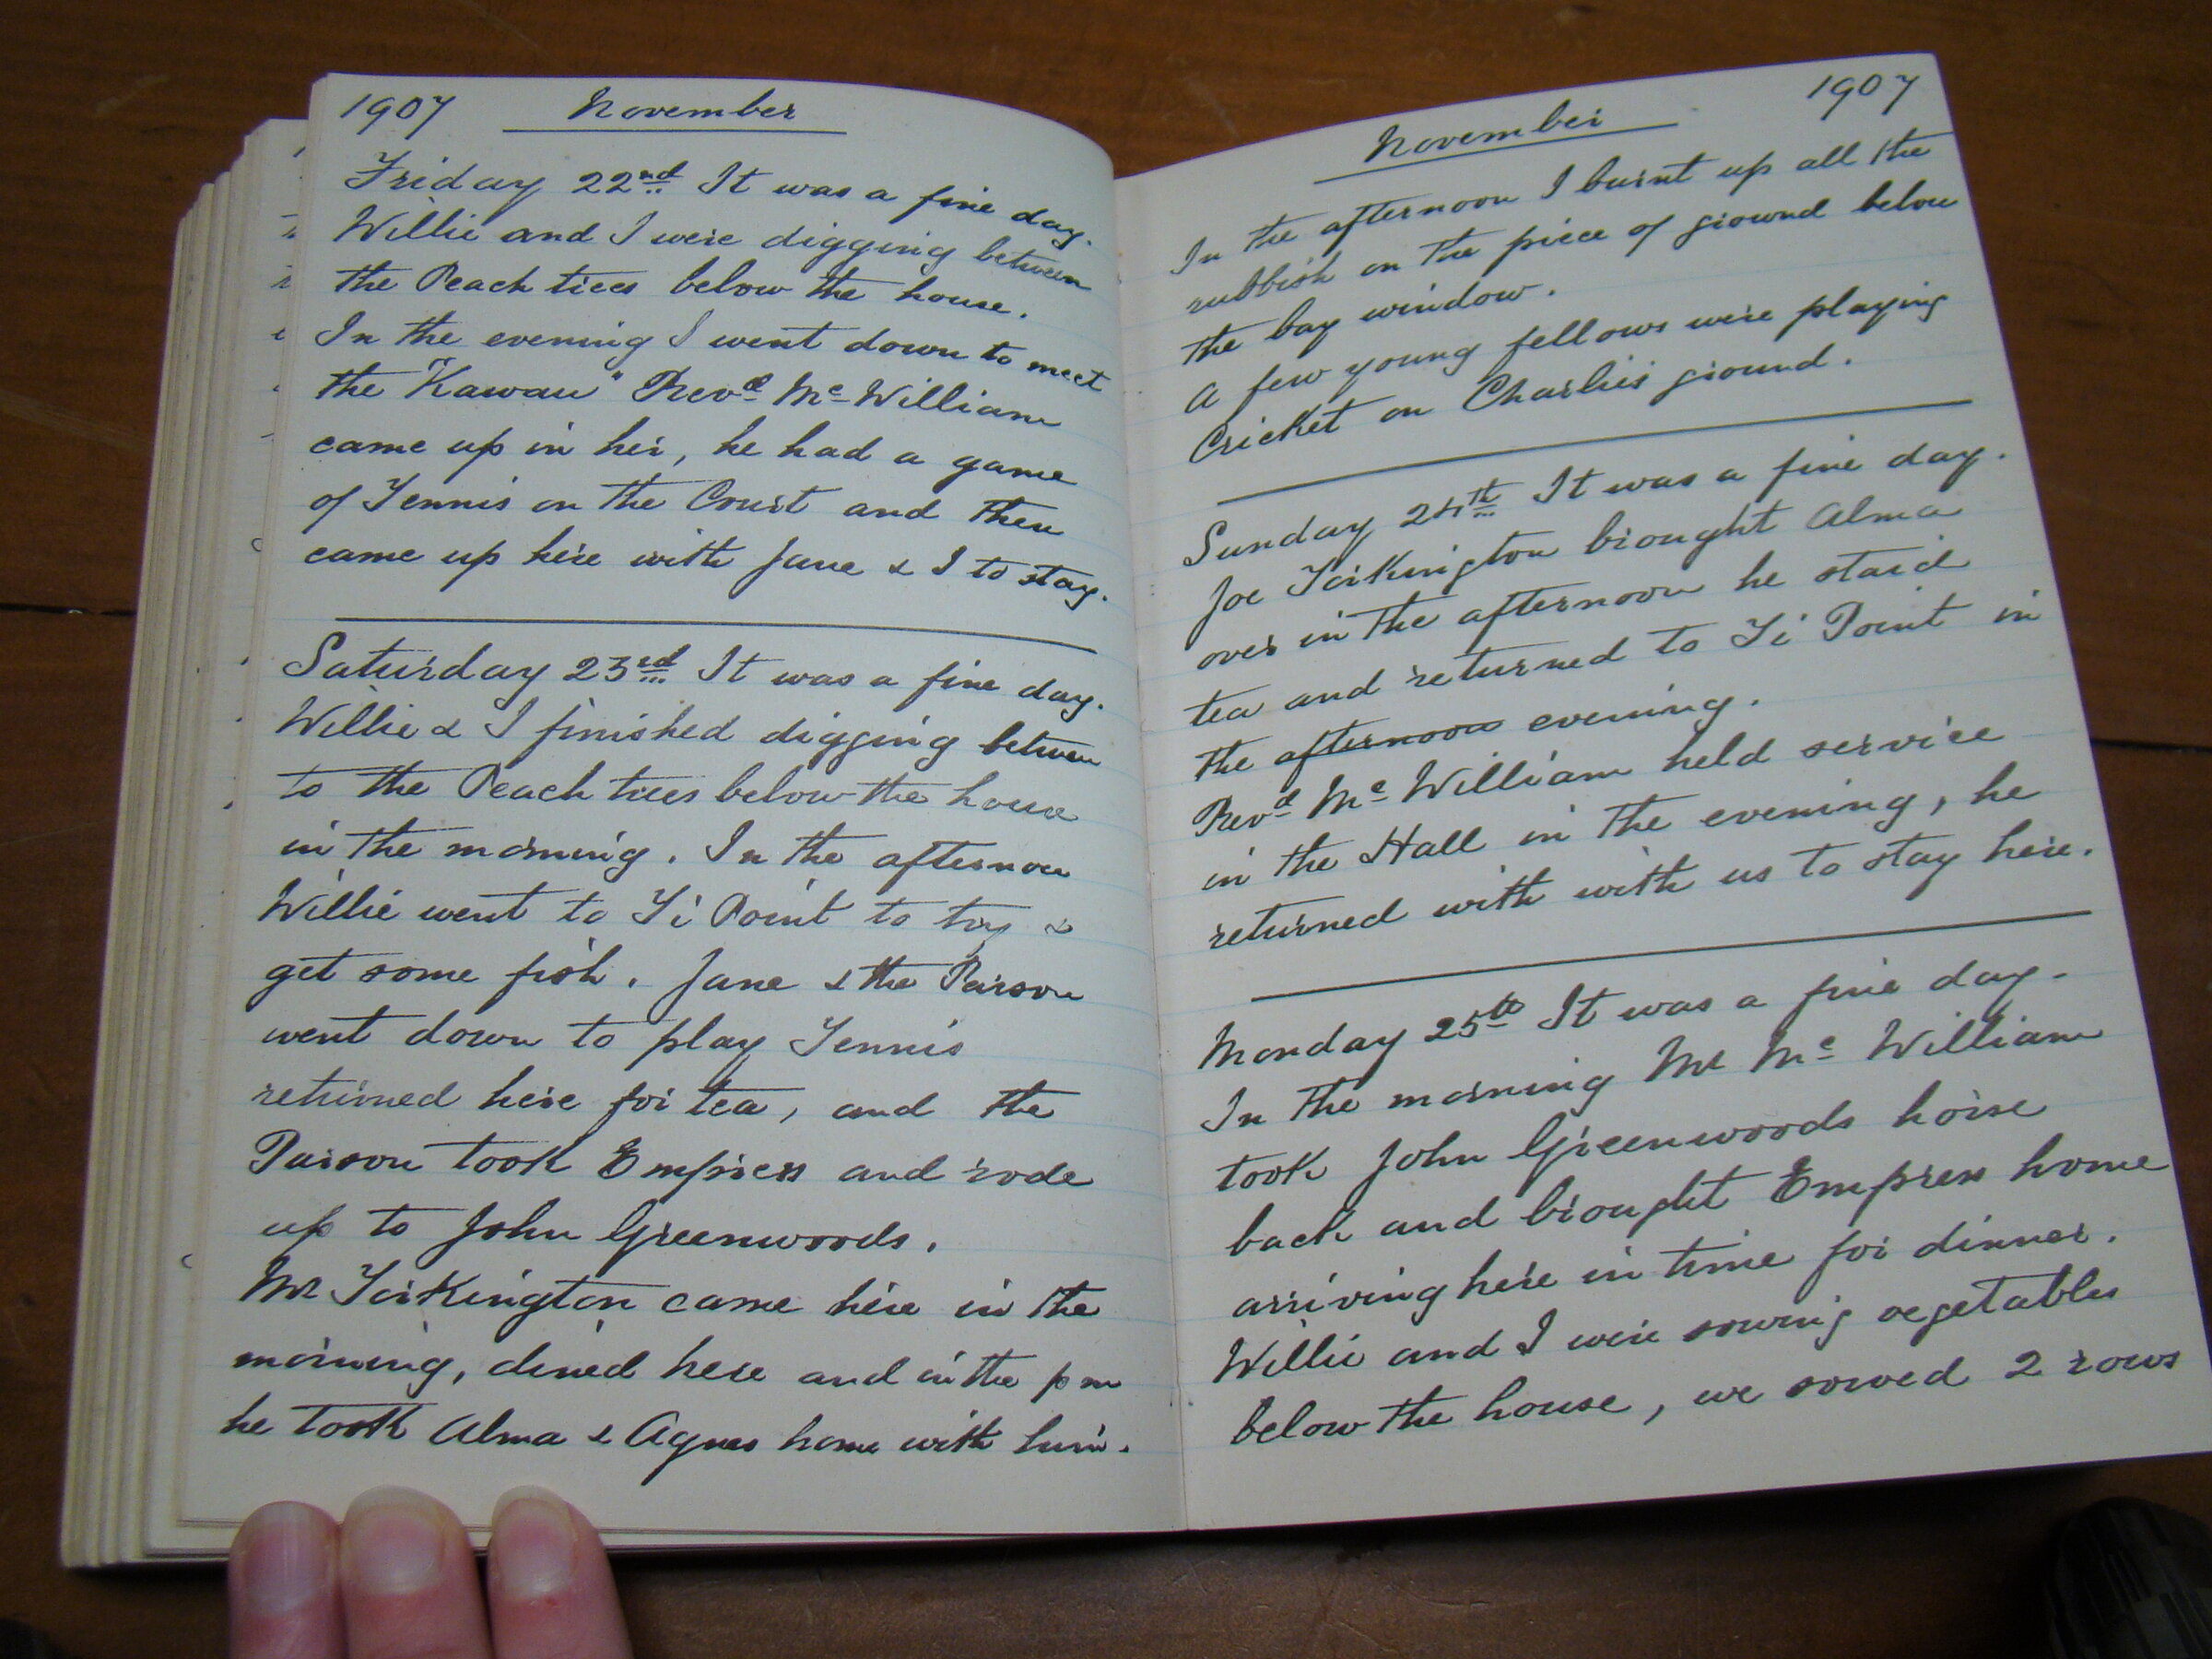 1907 November
Friday 22nd It was a fine day.
Willie and I were digging between
the Peach trees below the house.
In the evening I went down to meet
the "Kawau" Revd Mc William
came up in her, he had a game
of Tennis on the Court and then
came up here with Jane & I to stay.
Saturday 23rd It was a fine day.
Willie & I finished digging between
to the Peach trees below the house
in the morning. In the afternoon
Willie went to Ti Point to try &
get some fish. Jane & the Parson
went down to play Tennis
returned here for tea, and the
Parson took Empress and rode
up to John Greenwoods.
Mr Torkington came here in the
morning, dined here and in the pm
he took Alma & Agnes home with him.
November 1907
In the afternoon I burnt up all the
rubbish on the piece of ground below
the bay window.
A few young fellows were playing
Cricket on Charlie's ground.
Sunday 24th It was a fine day.
Joe Torkington brought Alma
over in the afternoon he staid
tea and returned to Ti Point in
the afternoon evening.
Revd Mc William held service
in the Hall in the evening, he
returned with with us to stay here.
Monday 25th It was a fine day.
In the morning Mr Mc William
took John Greenwoods horse
back and brought Empress home
arriving here in time for dinner.
Willie and I were sowing vegetables
below the house, we sowed 2 rows